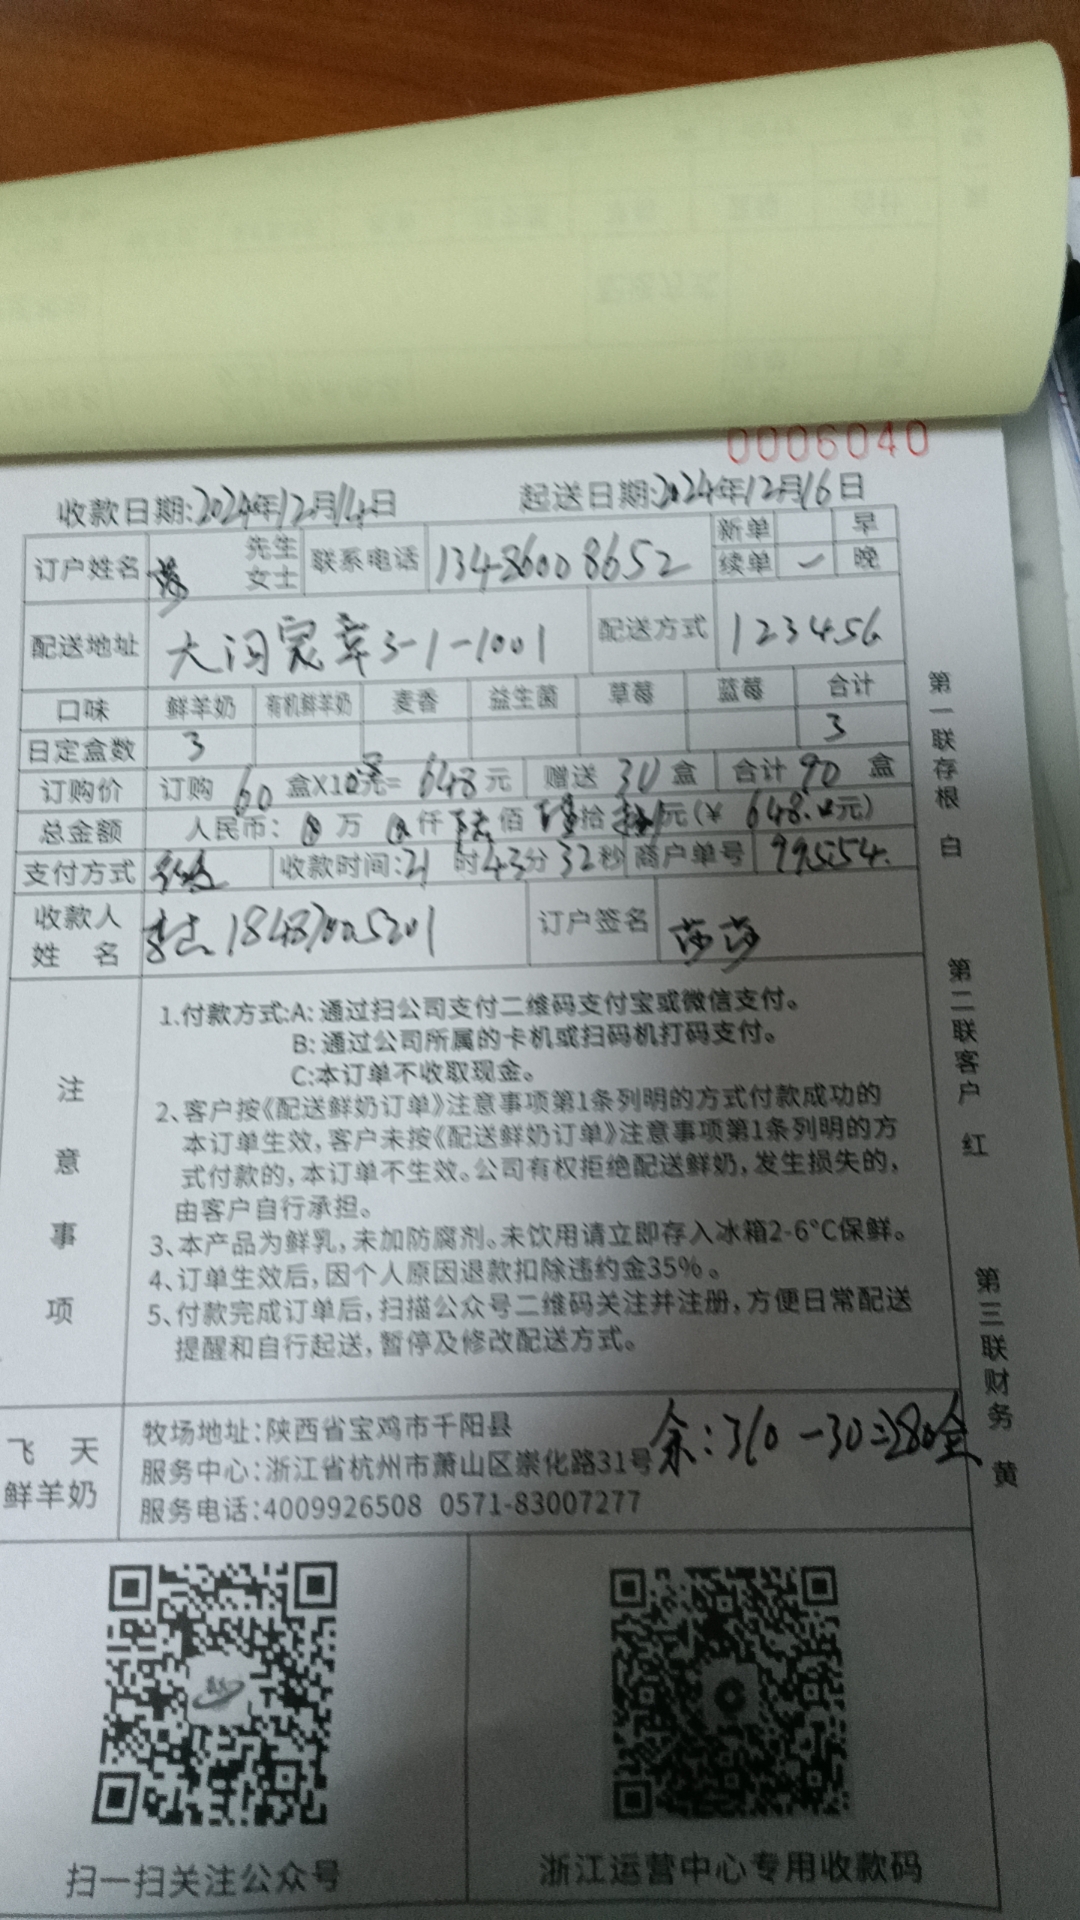 0006040
收款日期:2024年12月14日 起送日期:2024年12月16日
订户姓名 先生 女士 联系电话 13486008652 新单 早
续单 晚
配送地址 大闷宽幸3-1-1001 配送方式 123456
口味 鲜羊奶 有机鲜羊奶 麦香 益生菌 草莓 蓝莓 合计
日定盒数 3 3
订购价 订购 60 盒X10.8元= 648元 赠送 30 盒 合计 90 盒
总金额 人民币: 万 仟 陆 佰 拾 元(¥ 648.00元)
支付方式 收款时间:21时43分32秒 商户单号 995554.
收款人姓名 订户签名 莎莎
注意事项
1.付款方式:A: 通过扫公司支付二维码支付宝或微信支付。
B: 通过公司所属的卡机或扫码机打码支付。
C:本订单不收取现金。
2、客户按《配送鲜奶订单》注意事项第1条列明的方式付款成功的
本订单生效, 客户未按《配送鲜奶订单》注意事项第1条列明的方
式付款的, 本订单不生效。公司有权拒绝配送鲜奶, 发生损失的,
由客户自行承担。
3、本产品为鲜乳, 未加防腐剂。未饮用请立即存入冰箱2-6°C保鲜。
4、订单生效后, 因个人原因退款扣除违约金35%。
5、付款完成订单后, 扫描公众号二维码关注并注册, 方便日常配送
提醒和自行起送, 暂停及修改配送方式。
飞天
鲜羊奶
牧场地址:陕西省宝鸡市千阳县
服务中心:浙江省杭州市萧山区崇化路31号
服务电话:4009926508 0571-83007277
余:310-30=280盒
扫一扫关注公众号
浙江运营中心专用收款码
第一联存根 白
第二联客户 红
第三联财务 黄